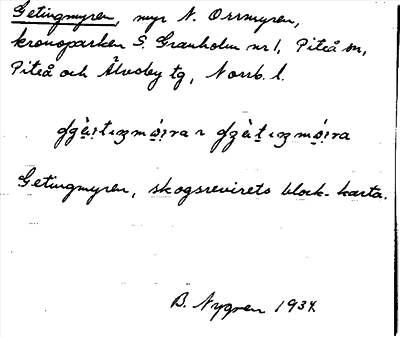 Getingmyren, myr N. Orrmyren,
kronoparken S. Granholm nr 1, Piteå sn,
Piteå och Älvsby tg, Norrb. l.
Getingmyren, skogsrevirets block-karta.
B. Nygren 1937.